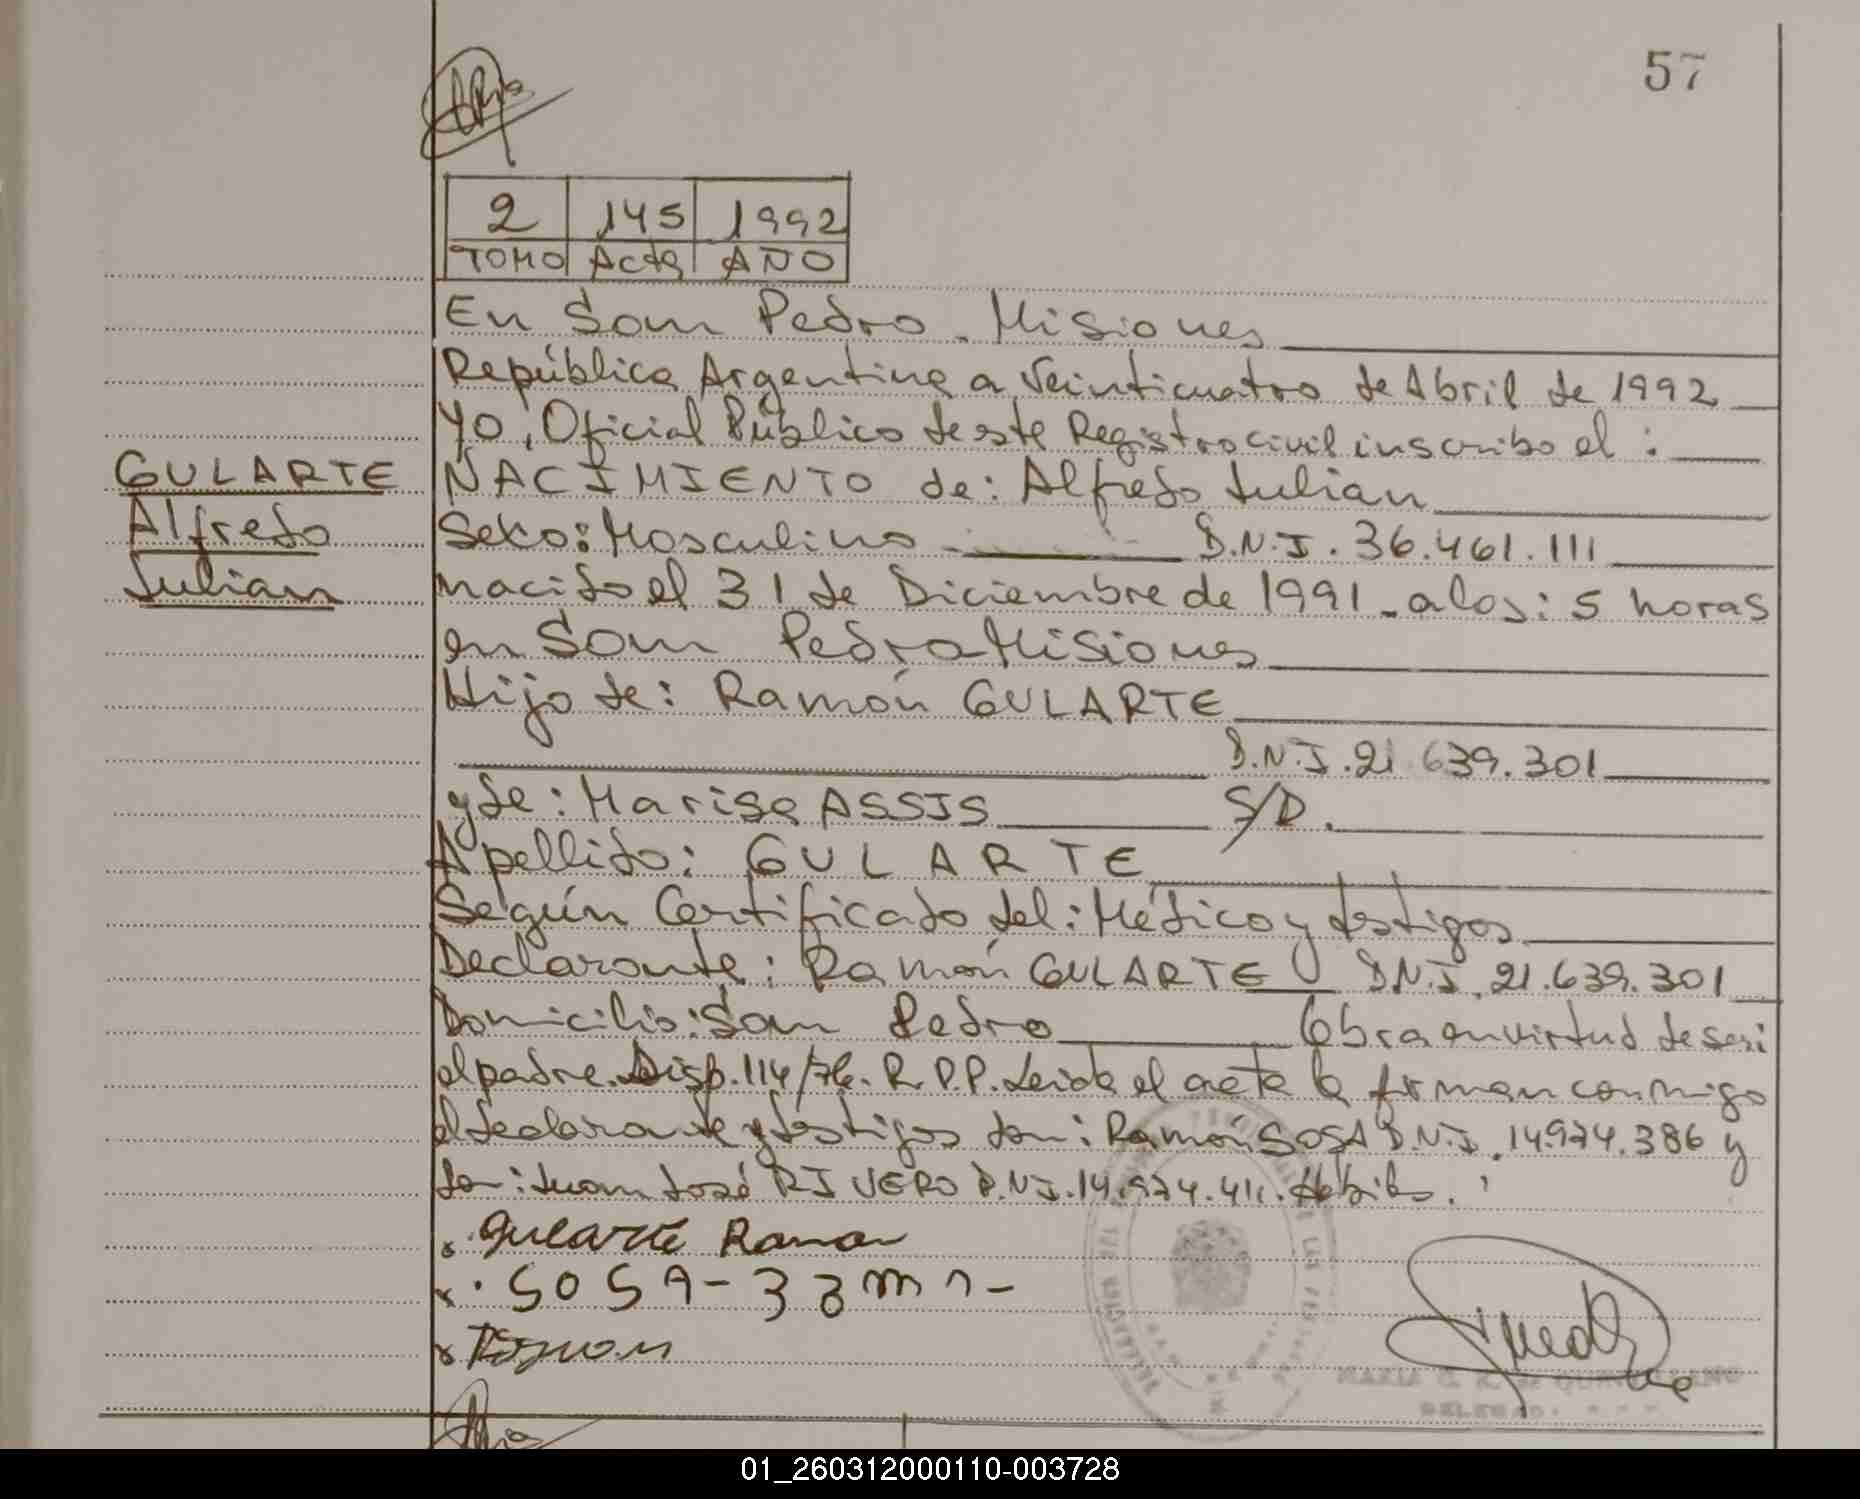 57
2 145 1992
TOMO Acta AÑO
En San Pedro - Misiones
República Argentina a Veinticuatro de Abril de 1992
Yo, Oficial Público de este Registro civil inscribo el :
GULARTE
NACIMIENTO de: Alfredo Julian
Alfredo
Sexo: Masculino D.N.I. 36.461.111
Julian
nacido el 31 de Diciembre de 1991 - a las: 5 horas
en San Pedro Misiones
Hijo de: Ramón GULARTE
D.N.I. 21.639.301
y de: Marisa ASSIS S/D.
Apellido: GULARTE
Según Certificado del: Médico y testigos
Declarante: Ramón GULARTE D.N.I. 21.639.301
Domicilio: San Pedro Obra en virtud de ser
el padre. Disp. 114/76. R.P.P. Leida el acta la firman conmigo
el declarante y testigos don: Ramón SOSA D.N.I. 14.974.386 y
don: Juan José RIVERO D.N.I. 14.974.411.
x. Gularte Ramon
x. SOSA-
x
01_260312000110-003728